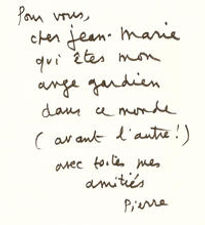 Pour vous,
cher jean-Marie
qui êtes mon
ange gardien
dans ce monde
( avant l'autre ! )
avec toutes mes
amitiés
Pierre